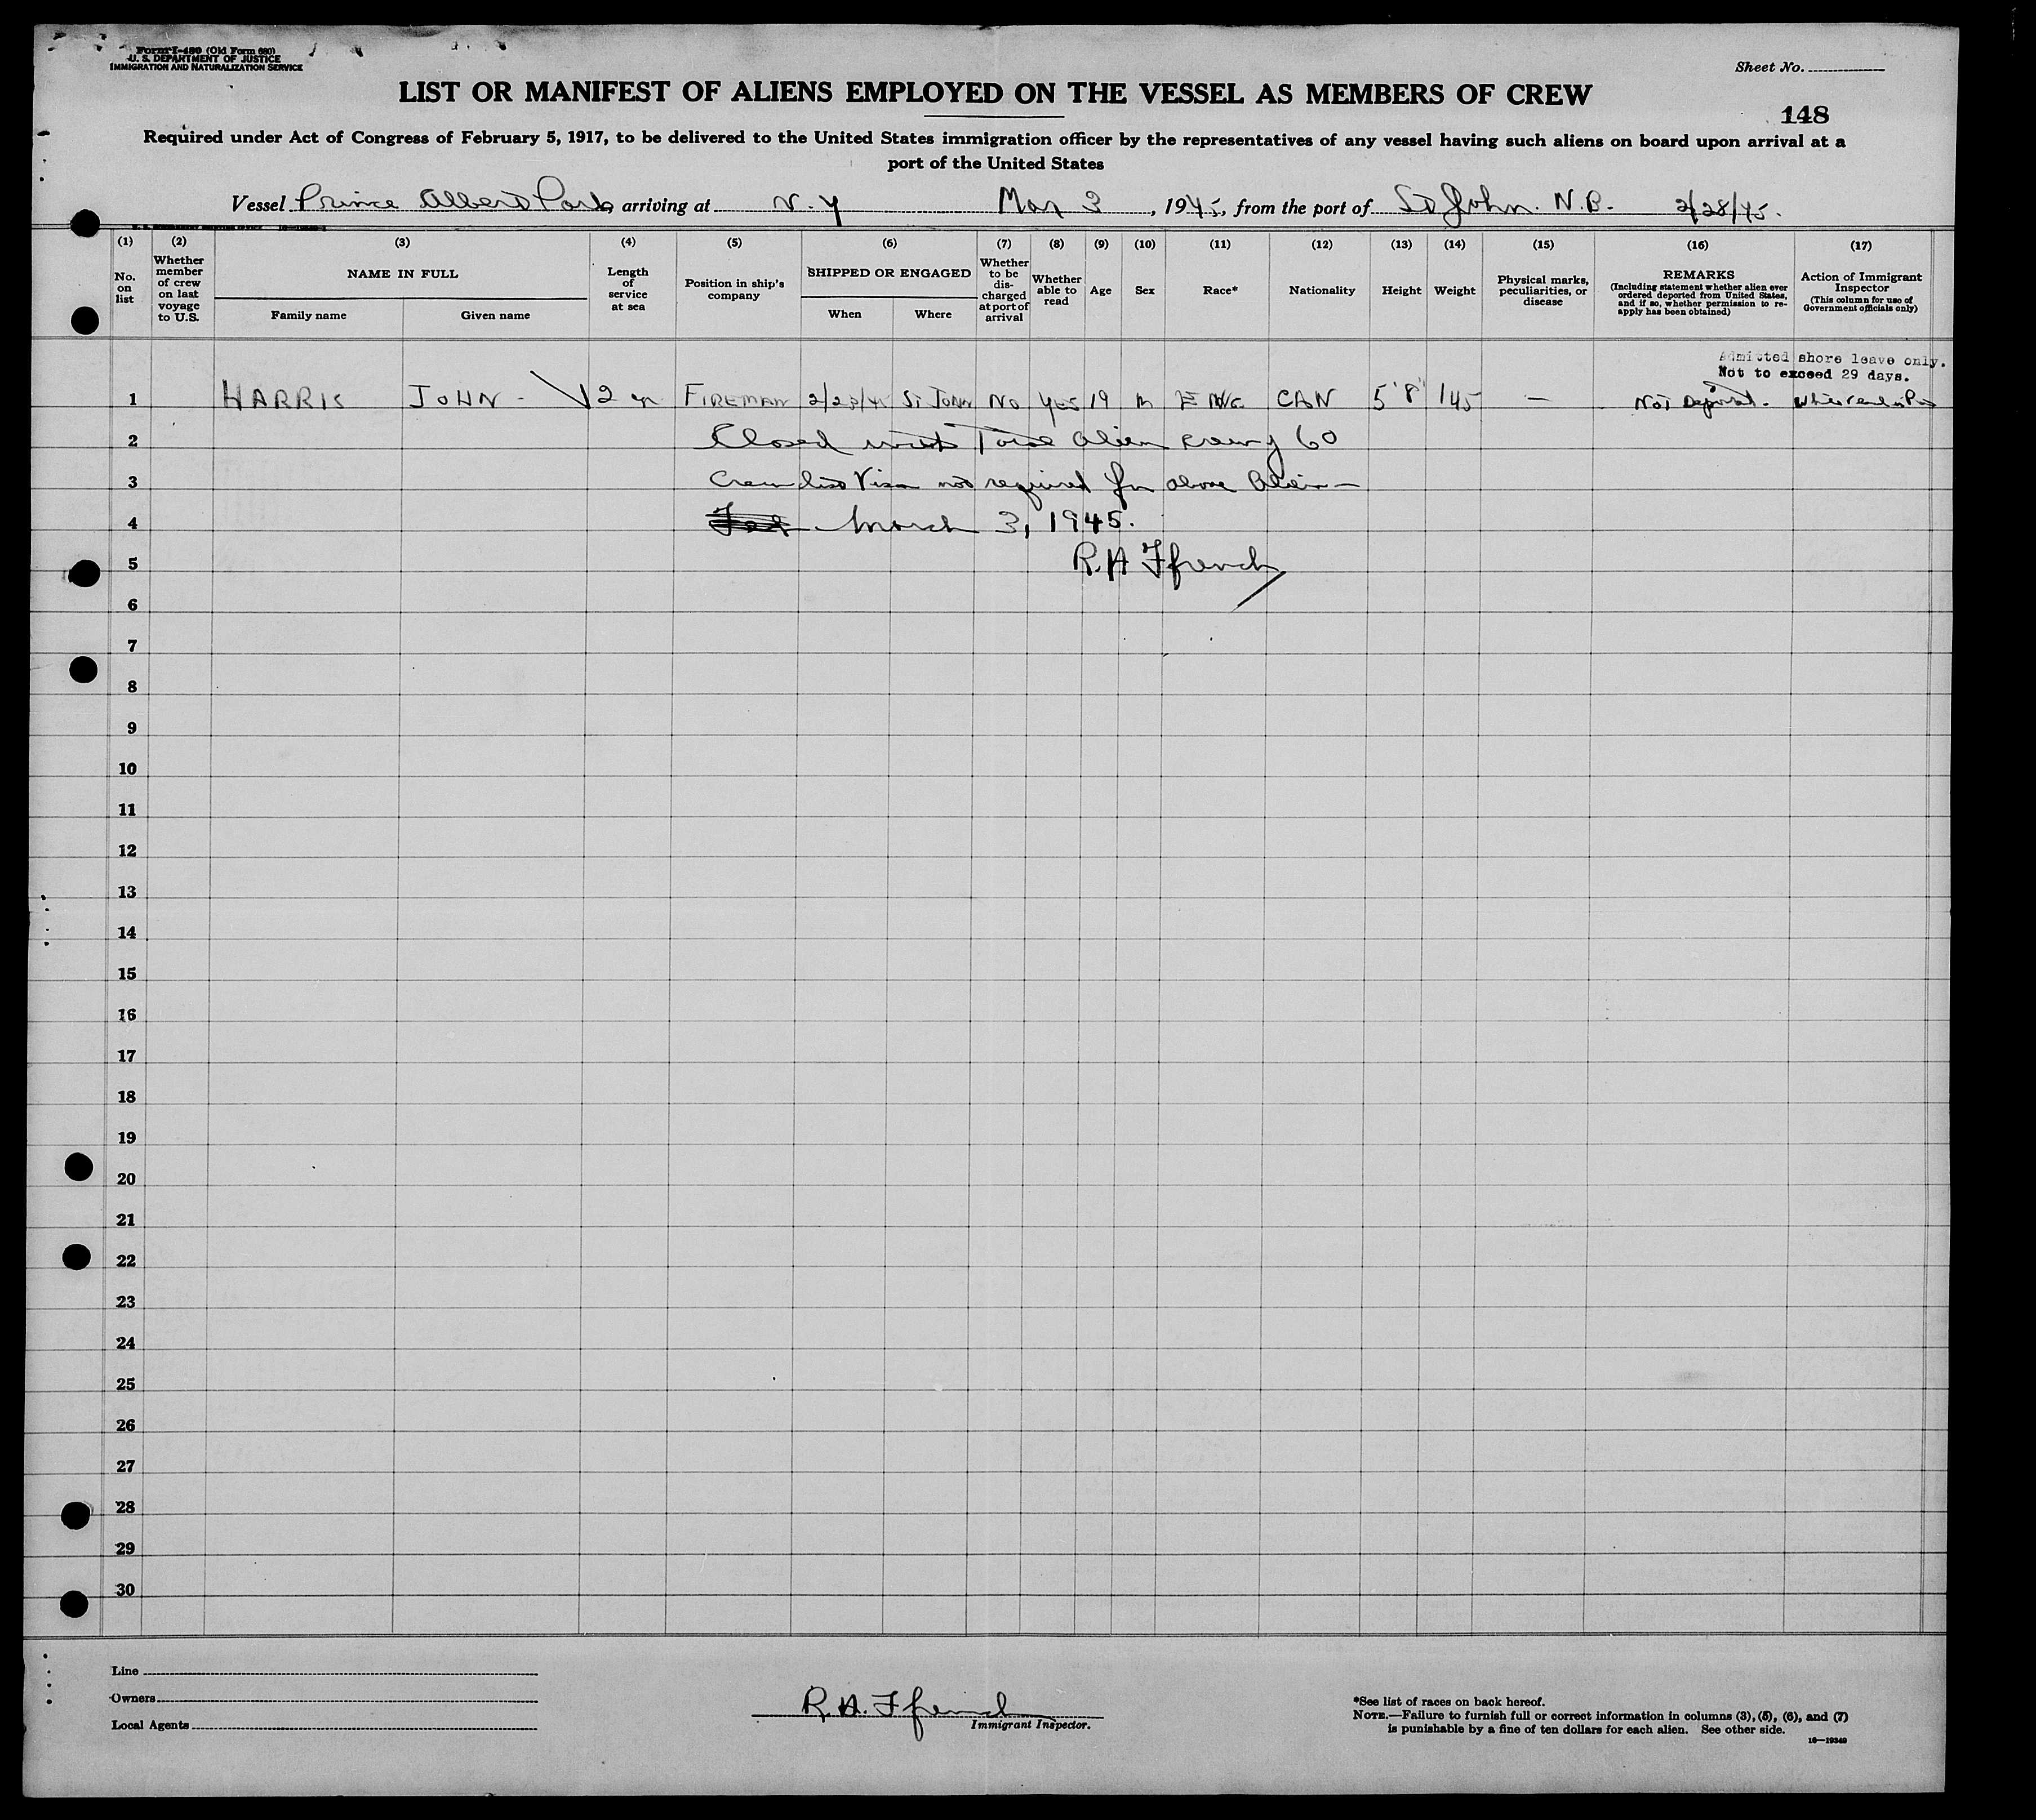 Form I-480 (Old Form 680)
U. S. DEPARTMENT OF JUSTICE
IMMIGRATION AND NATURALIZATION SERVICE
Sheet No.
LIST OR MANIFEST OF ALIENS EMPLOYED ON THE VESSEL AS MEMBERS OF CREW
148
Required under Act of Congress of February 5, 1917, to be delivered to the United States immigration officer by the representatives of any vessel having such aliens on board upon arrival at a
port of the United States
Vessel Prince Albert Park arriving at N.Y Mar 3, 1945, from the port of St John. N.B. 2/28/45.
(1) (2) (3) (4) (5) (6) (7) (8) (9) (10) (11) (12) (13) (14) (15) (16) (17)
No. on list
Whether member of crew on last voyage to U.S.
NAME IN FULL
Family name Given name
Length of service at sea
Position in ship's company
SHIPPED OR ENGAGED
When Where
Whether to be discharged at port of arrival
Whether able to read
Age
Sex
Race*
Nationality
Height
Weight
Physical marks, peculiarities, or disease
REMARKS
(Including statement whether alien ever ordered deported from United States, and if so, whether permission to re-apply has been obtained)
Action of Immigrant Inspector
(This column for use of Government officials only)
Admitted shore leave only.
Not to exceed 29 days.
1 HARRIS JOHN - 2 yr FIREMAN St JOHN NO YES 19 m ENG CAN 5'8" 145 — Not Deported.
2 Closed with Total alien crew of 60
3 Crew list Visa not required for above Alien —
4 March 3, 1945.
5 R.H Ffrench
6
7
8
9
10
11
12
13
14
15
16
17
18
19
20
21
22
23
24
25
26
27
28
29
30
Line
Owners
Local Agents
R.H. Ffrench
Immigrant Inspector.
*See list of races on back hereof.
NOTE.—Failure to furnish full or correct information in columns (3), (5), (6), and (7)
is punishable by a fine of ten dollars for each alien. See other side.
16—19349